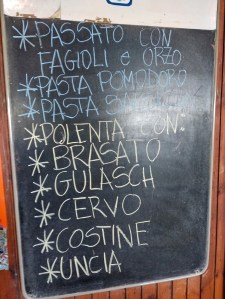 *PASSATO CON
FAGIOLI e ORZO
*PASTA POMODORO
*PASTA
*POLENTA CON:
*BRASATO
*GULASCH
*CERVO
*COSTINE
*UNCIA